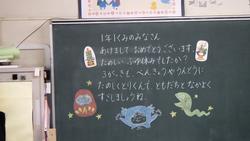 1年1くみのみなさん
あけましておめでとうございます。
たのしいふゆ休みでしたか？
3がっきも、べんきょうやうんどうに
たのしくとりくんで、ともだちとなかよく
すごしましょうね。